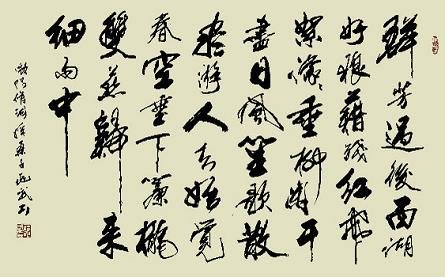 群芳過後西湖
好狼藉殘紅飛
絮濛濛垂柳闌干
盡日風笙歌散
盡遊人去始覺
春空垂下簾櫳
雙燕歸來
細雨中
歐陽脩詞採桑子